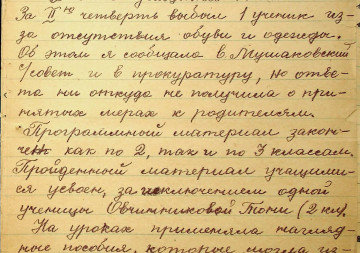 За II ую четверть выбыл 1 ученик из-
за отсутствия обуви и одежды.
Об этом я сообщала в Мушаковский
с/совет и в прокуратуру, но отве-
та ни откуда не получила о при-
нятых мерах к родителям.
Программный материал закон-
чен как по 2, так и по 3 классам.
Пройденный материал учащими-
ся усвоен, за исключением одной
ученицы Овчинниковой Тони (2 кл.)
На уроках применяла нагляд-
ные пособия, которые могла из-